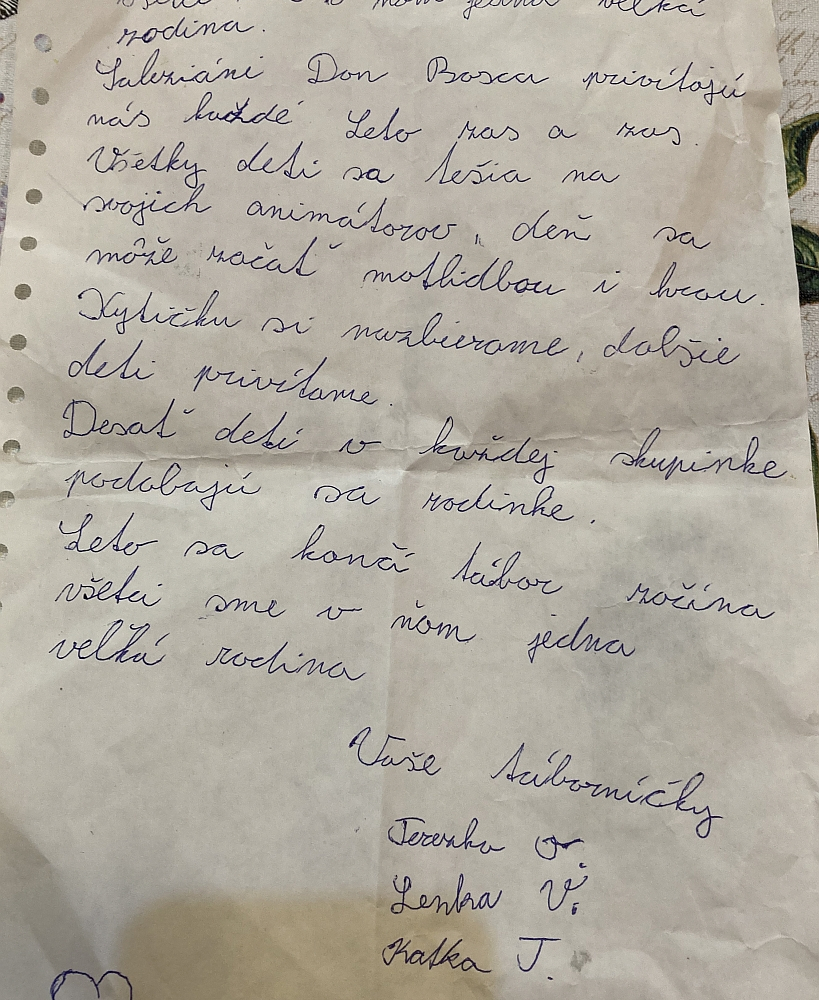 v ňom jedna veľká
rodina.
Saleziáni Don Bosca privítajú
nás každé Leto zas a zas.
Všetky deti sa tešia na
svojich animátorov, deň sa
môže začať motlidbou i hrou.
Kytičku si nazbierame, dalšie
deti privítame.
Desať detí v každej skupinke
podobajú sa rodinke.
Leto sa končí tábor začína
všetci sme v ňom jedna
veľká rodina
Vaše táborníčky
Terezka O.
Lenka V.
Katka J.